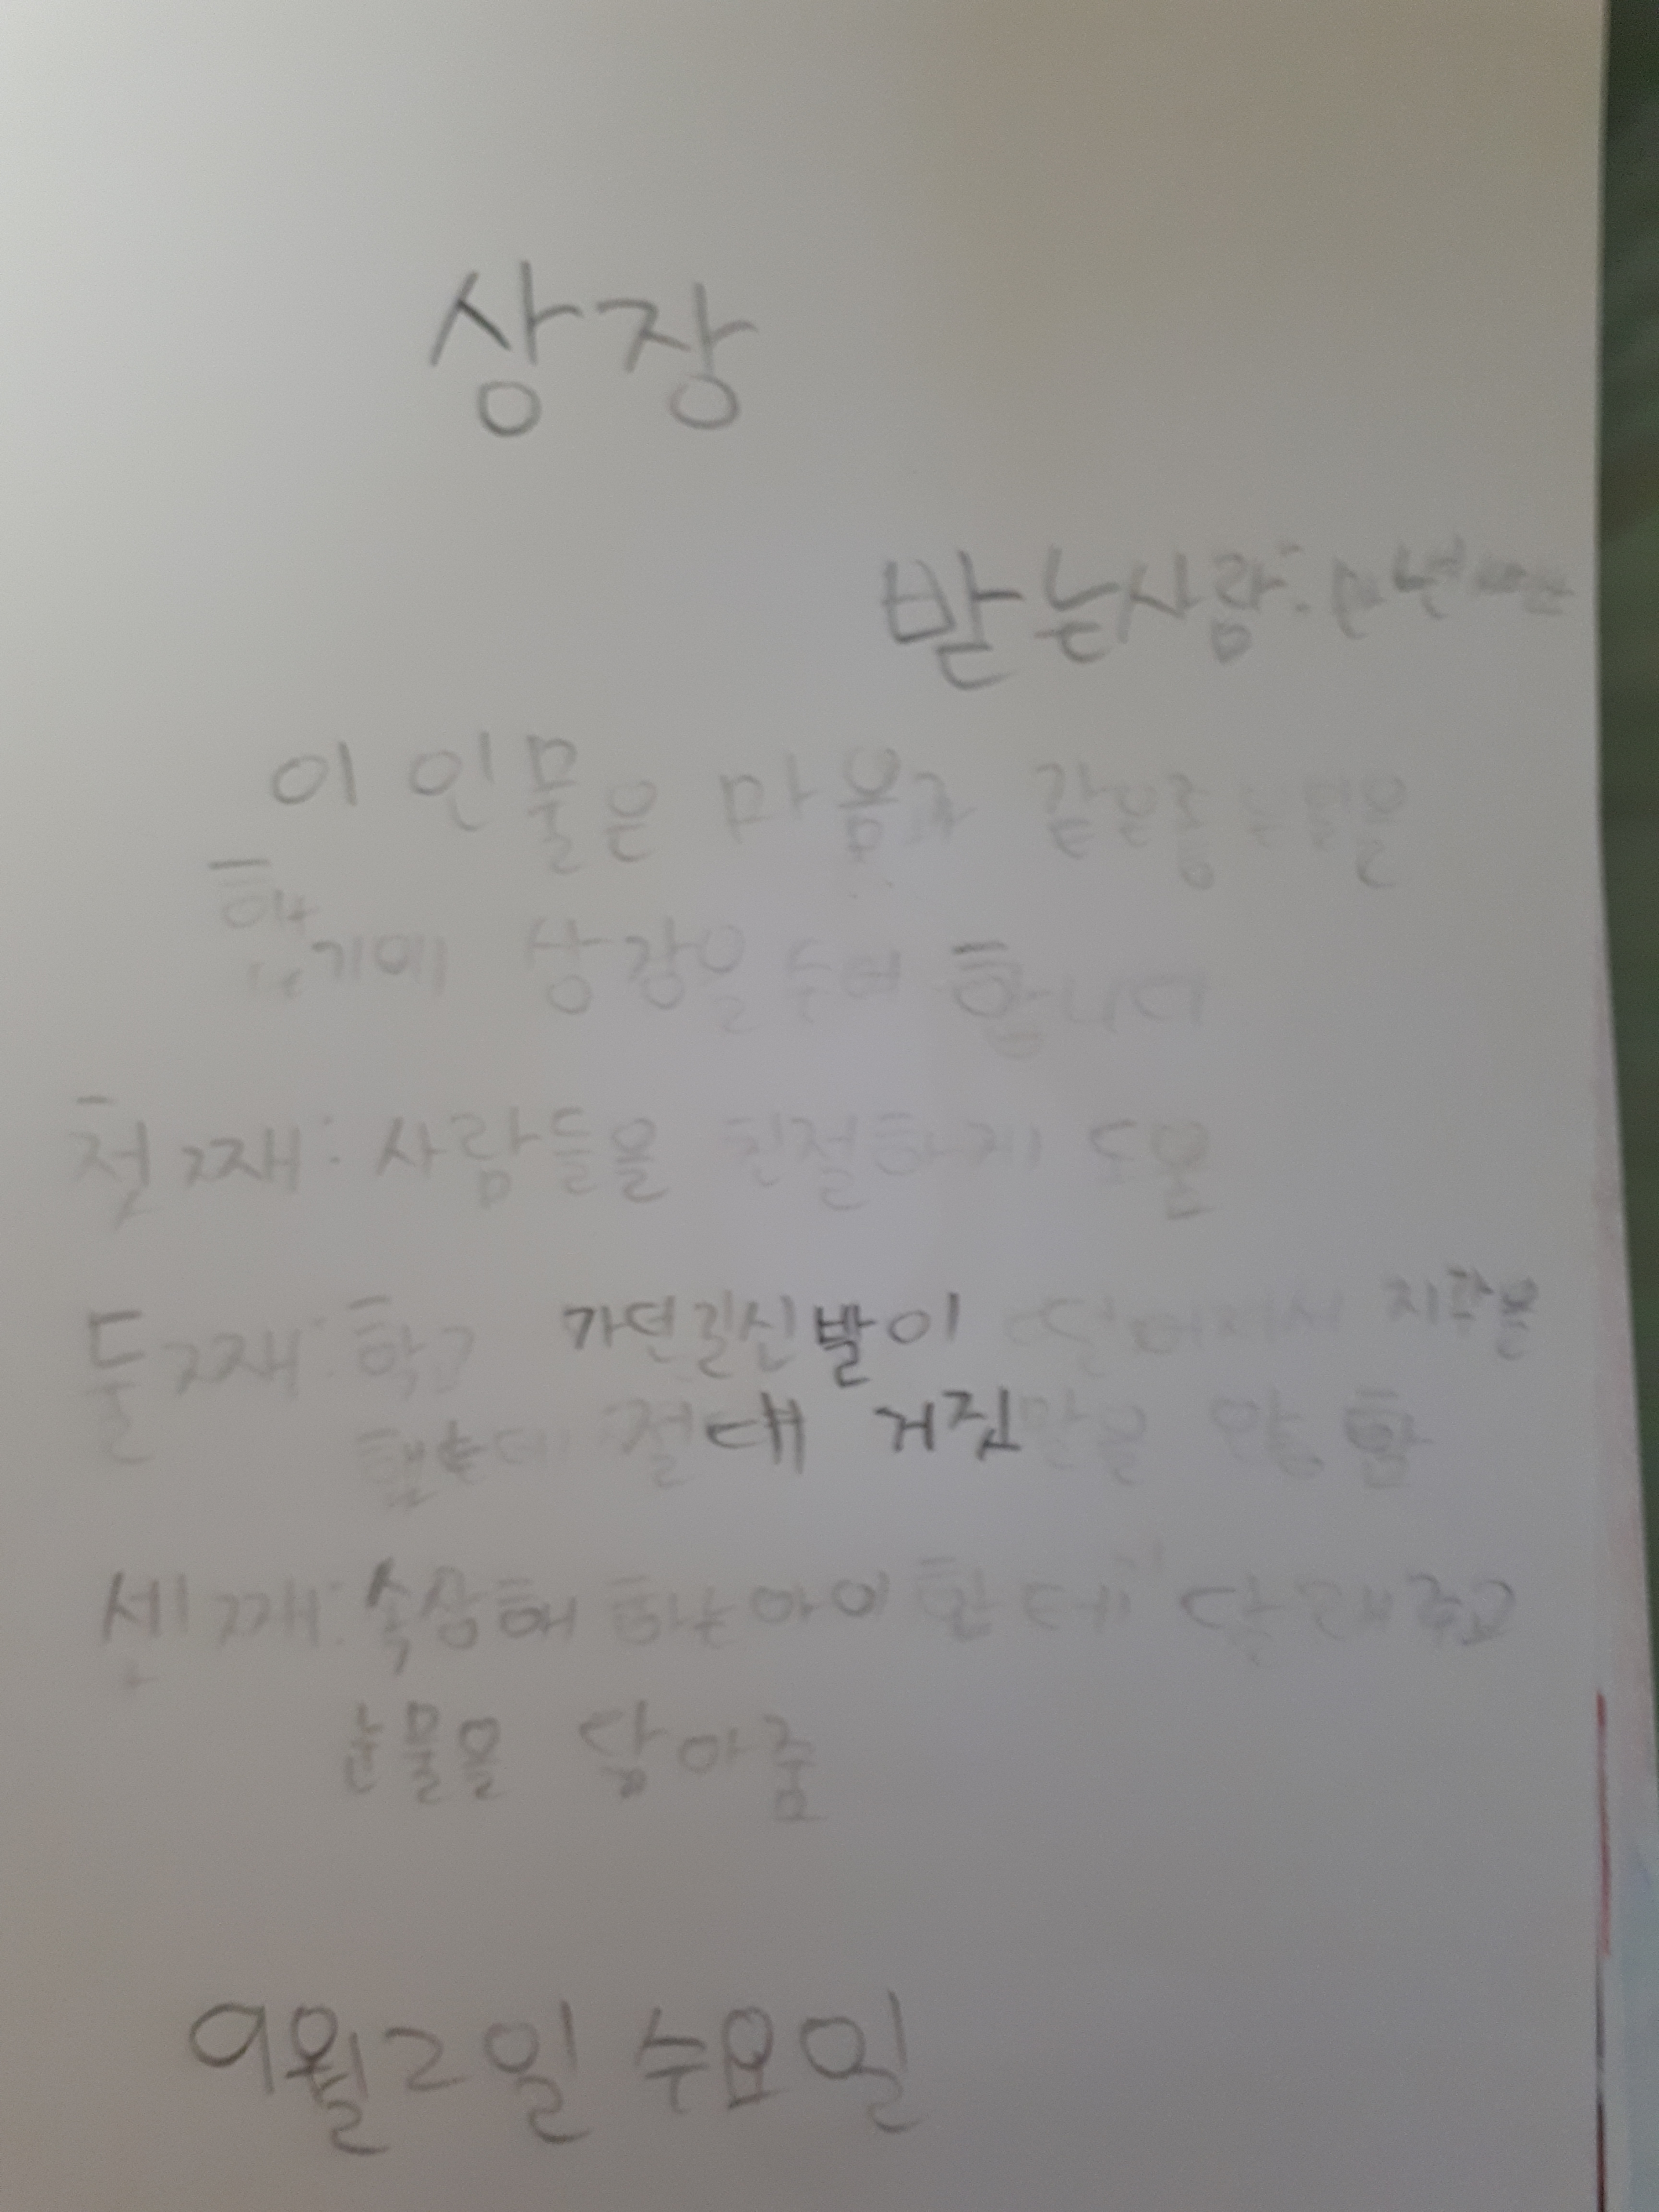 상장
받는사람:
이 인물은 마음과 같은 행동을
했기에 상장을 수여 합니다
첫째: 사람들을 친절하게 도움
둘째: 학교 가던길신발이 지각을
했는데 절대 거짓말을 안 함
셋째: 속상해 하는 아이 한테 달래 주고
눈물을 닦아줌
9월2일 수요일